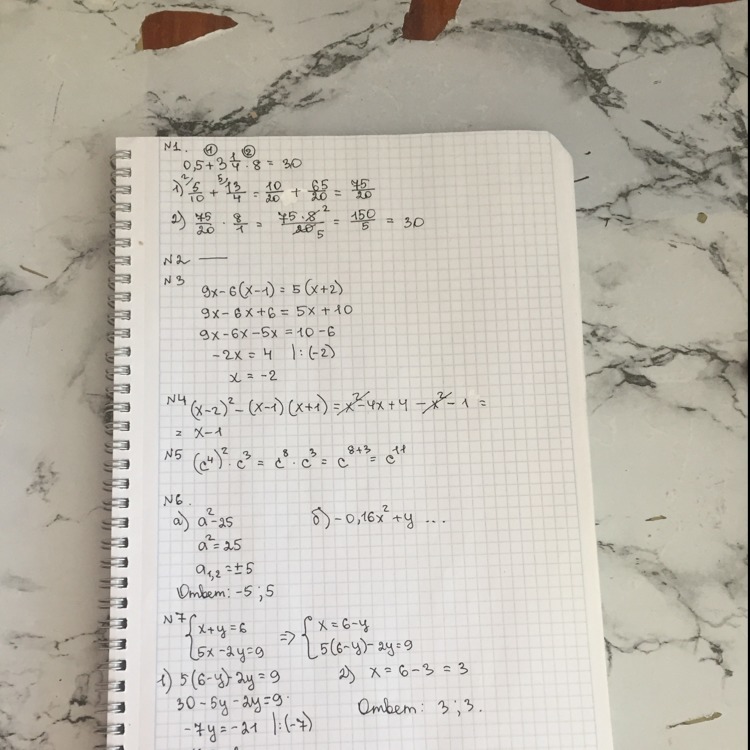 N1.
① ②
0,5+3 1/4 · 8 = 30
1) 5/10 + 13/4 = 10/20 + 65/20 = 75/20
2) 75/20 · 8/1 = 75·8/20 = 150/5 = 30
N2 —
N3
9x-6(x-1) = 5(x+2)
9x-6x+6 = 5x+10
9x-6x-5x = 10-6
-2x = 4 |:(-2)
x = -2
N4 (x-2)² - (x-1)(x+1) = x²-4x+4 - x²-1 =
= x-1
N5 (c⁴)² · c³ = c⁸ · c³ = c⁸⁺³ = c¹¹
N6.
а) a²-25 б) -0,16x²+y ...
a² = 25
a₁,₂ = ±5
Ответ: -5 ; 5
N7 { x+y=6 => { x = 6-y
5x-2y=9 5(6-y)-2y=9
1) 5(6-y)-2y=9 2) x = 6-3 = 3
30-5y-2y=9. Ответ: 3 ; 3.
-7y=-21 |:(-7)